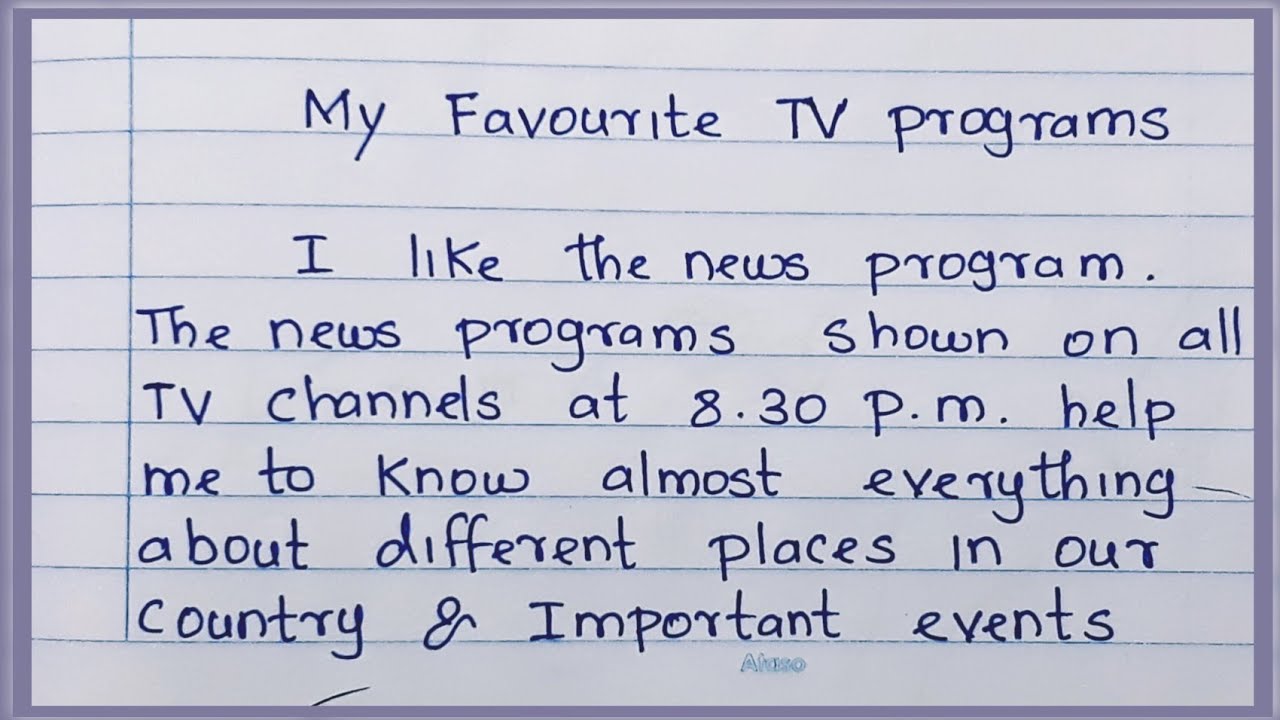 My Favourite TV programs
I like the news program.
The news programs shown on all
TV channels at 8.30 p.m. help
me to know almost everything
about different places in our
country & Important events